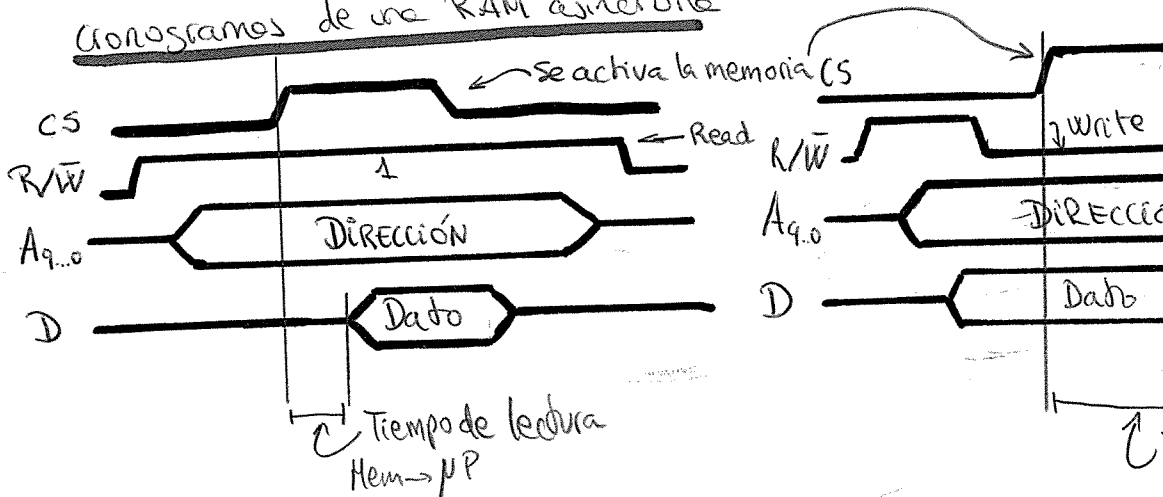 cronogramas de una RAM asíncrona
Se activa la memoria
CS
Read
R/W̅
1
A9...0
DIRECCIÓN
D
Dato
Tiempo de lectura
Mem→µP
CS
Write
R/W̅
A9..0
DIRECCIÓ
D
Dato